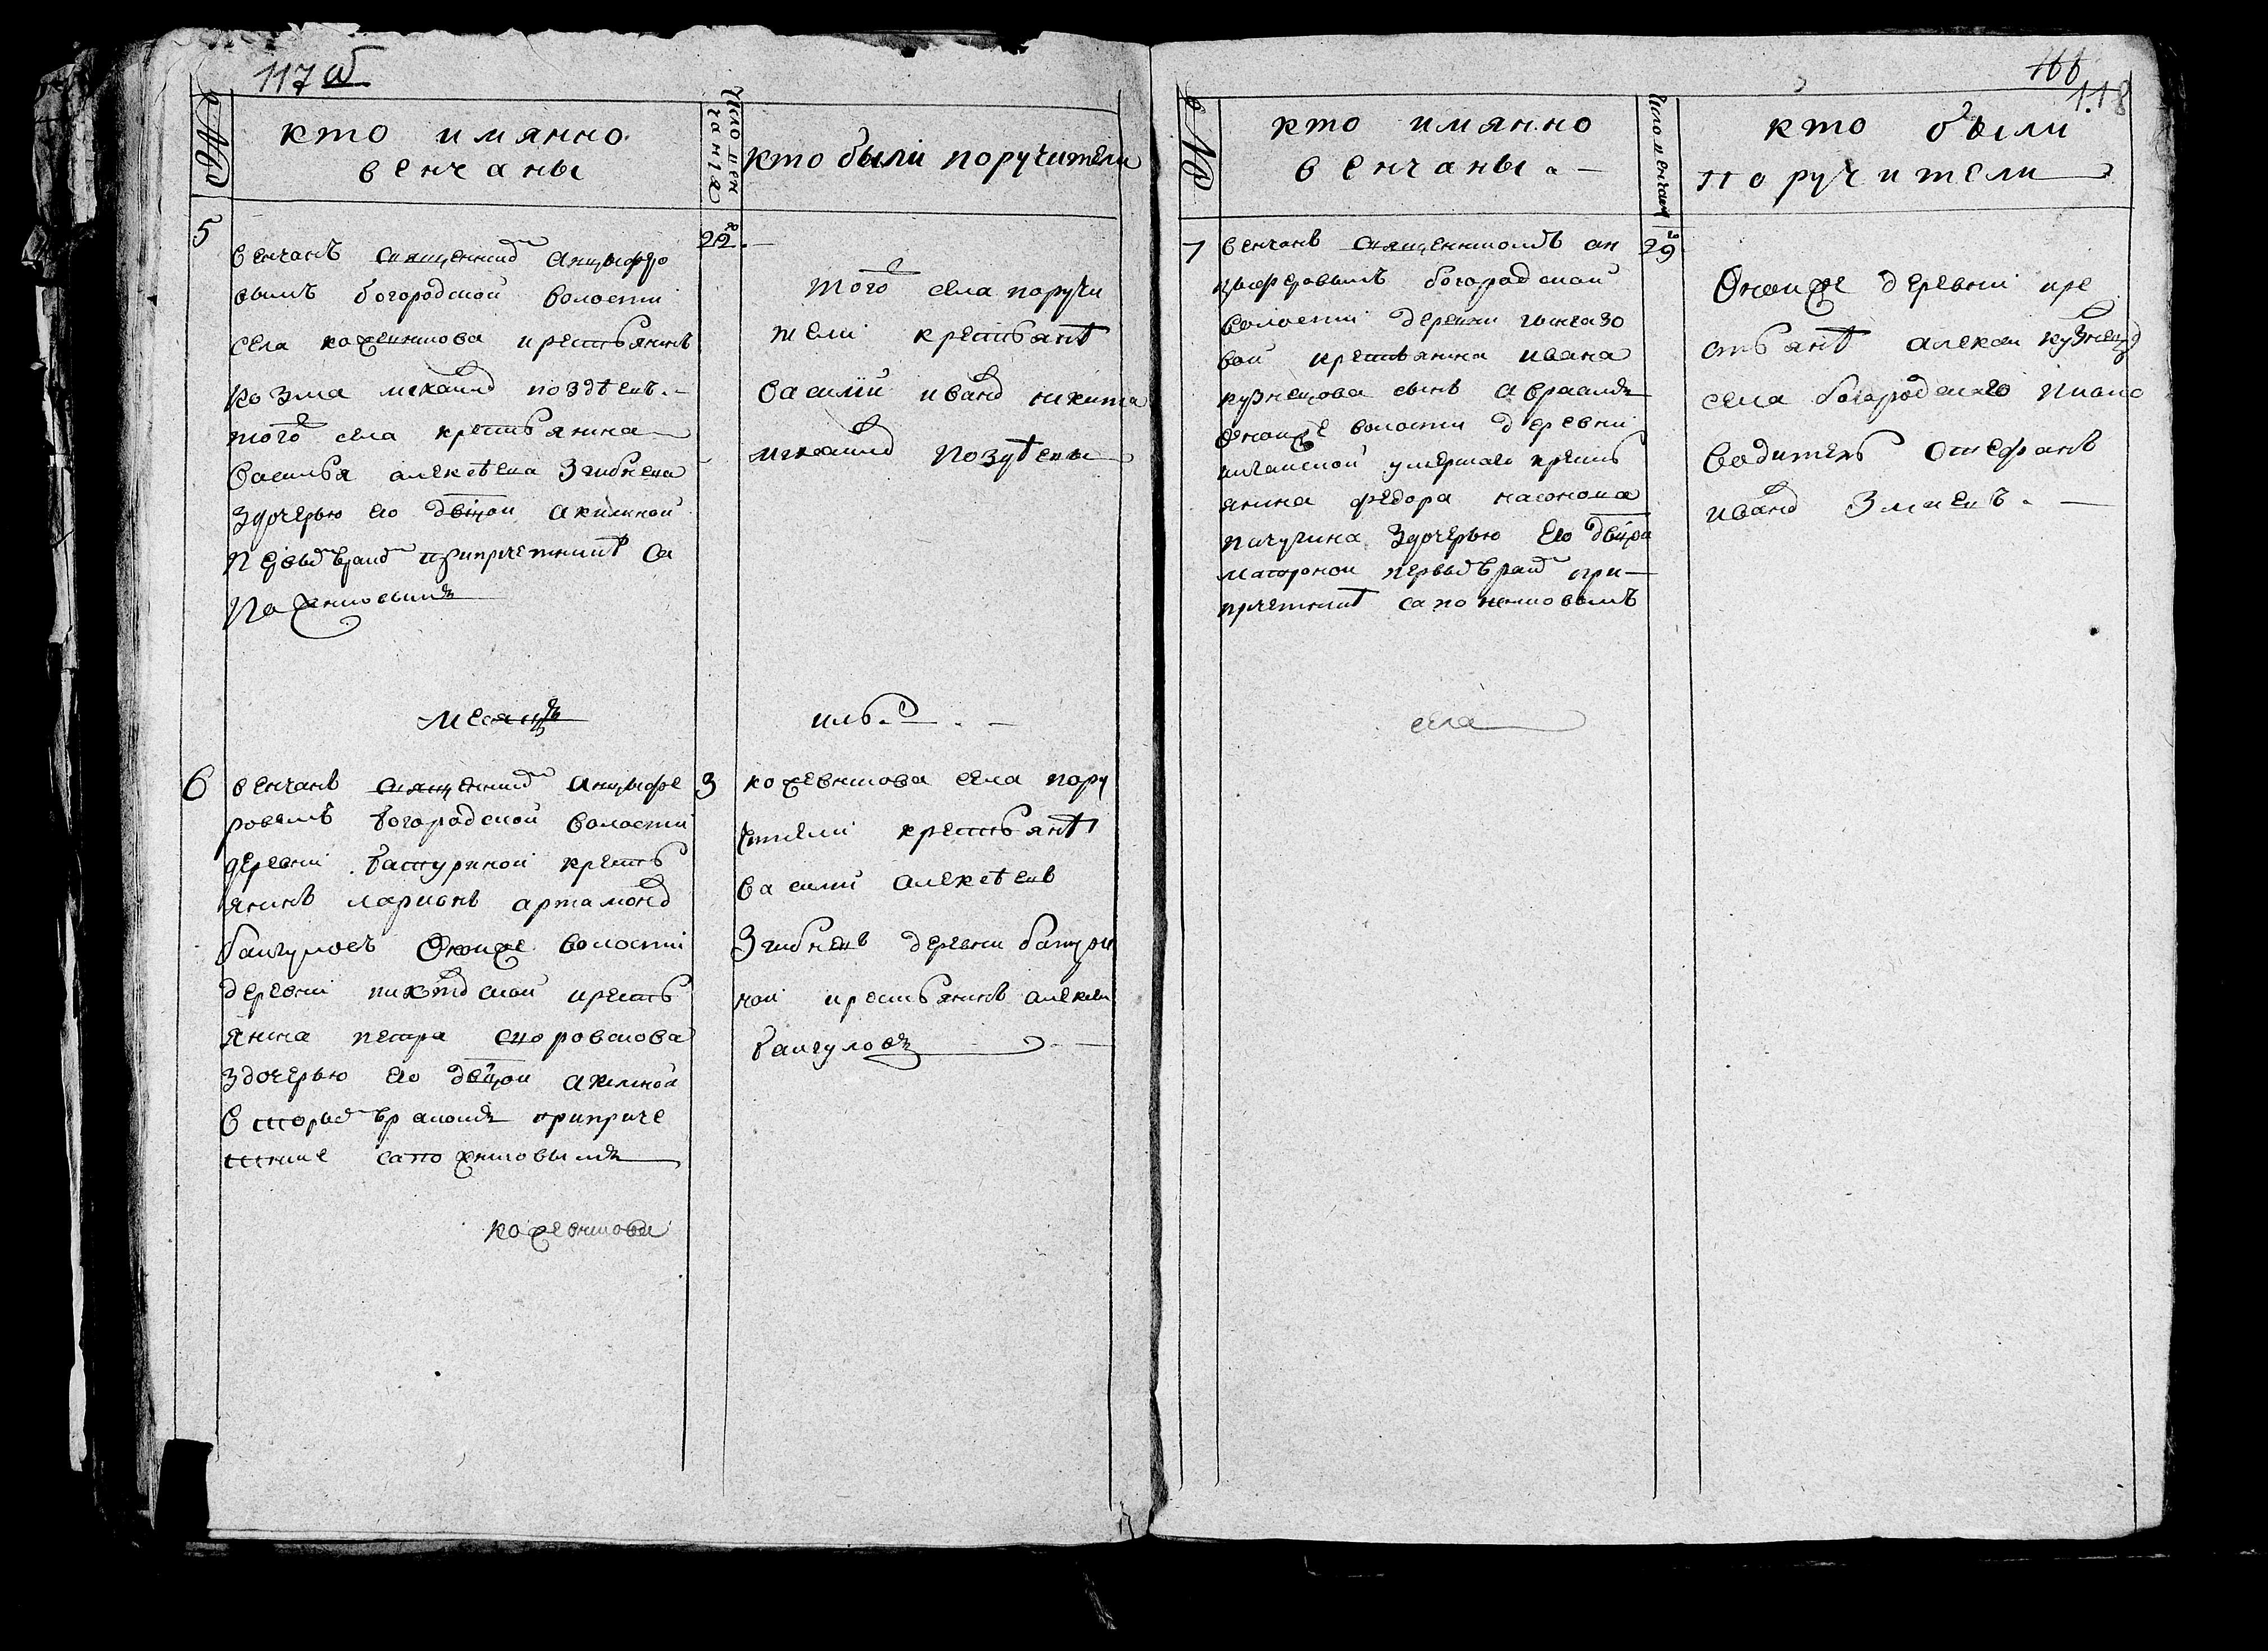 117 об
№
кто имянно
венчаны
Число вен
чания
кто были поручители
5
венчанъ священником Анцыферо
вымъ богородской волости
села кожевникова крестьянинъ
козма михайлов поздѣевъ.
того села крестьянина
Василья алексѣева Згибнева
здочерью ево девицой акилиной
первым браком припричетникѣ Са
Пожниковымъ
22
того села поручи
тели крестьянѣ
Василий иванов никита
михайлов Поздѣевы
месяцъ
иль.
6
венчанъ священником Анцыфе
ровымъ богородской волости
деревни батуриной кресть
янинъ ларионъ артамонов
байгуловъ Оной же волости
деревни крестъ
янина петра
здочерью ево девицой акилиной
вторым бракомъ приприче
тнике сапожниковымъ
3
кожевникова села пору
чители крестьянѣ
Василий алексѣевъ
Згибневъ деревни батури
ной крестьянинъ алексей
байгуловъ
кожевникова
166
118
№
кто имянно
венчаны.
Число венчания
кто были
поручители
7
венчанъ священникомъ ан
цыферовымъ богородской
волости деревни
вой крестьянина ивана
кузнецова сынъ Авраамъ
Оной же волости деревни
умершаго кресть
янина федора
пичугина здочерью ево девицой
матроной первым браком при
причетникѣ сапожниковымъ
29
Оной же деревни кре
стьянѣ алексей кузнецов
села богородскаго
водитель Стефанъ
иванов Змеевъ.
села